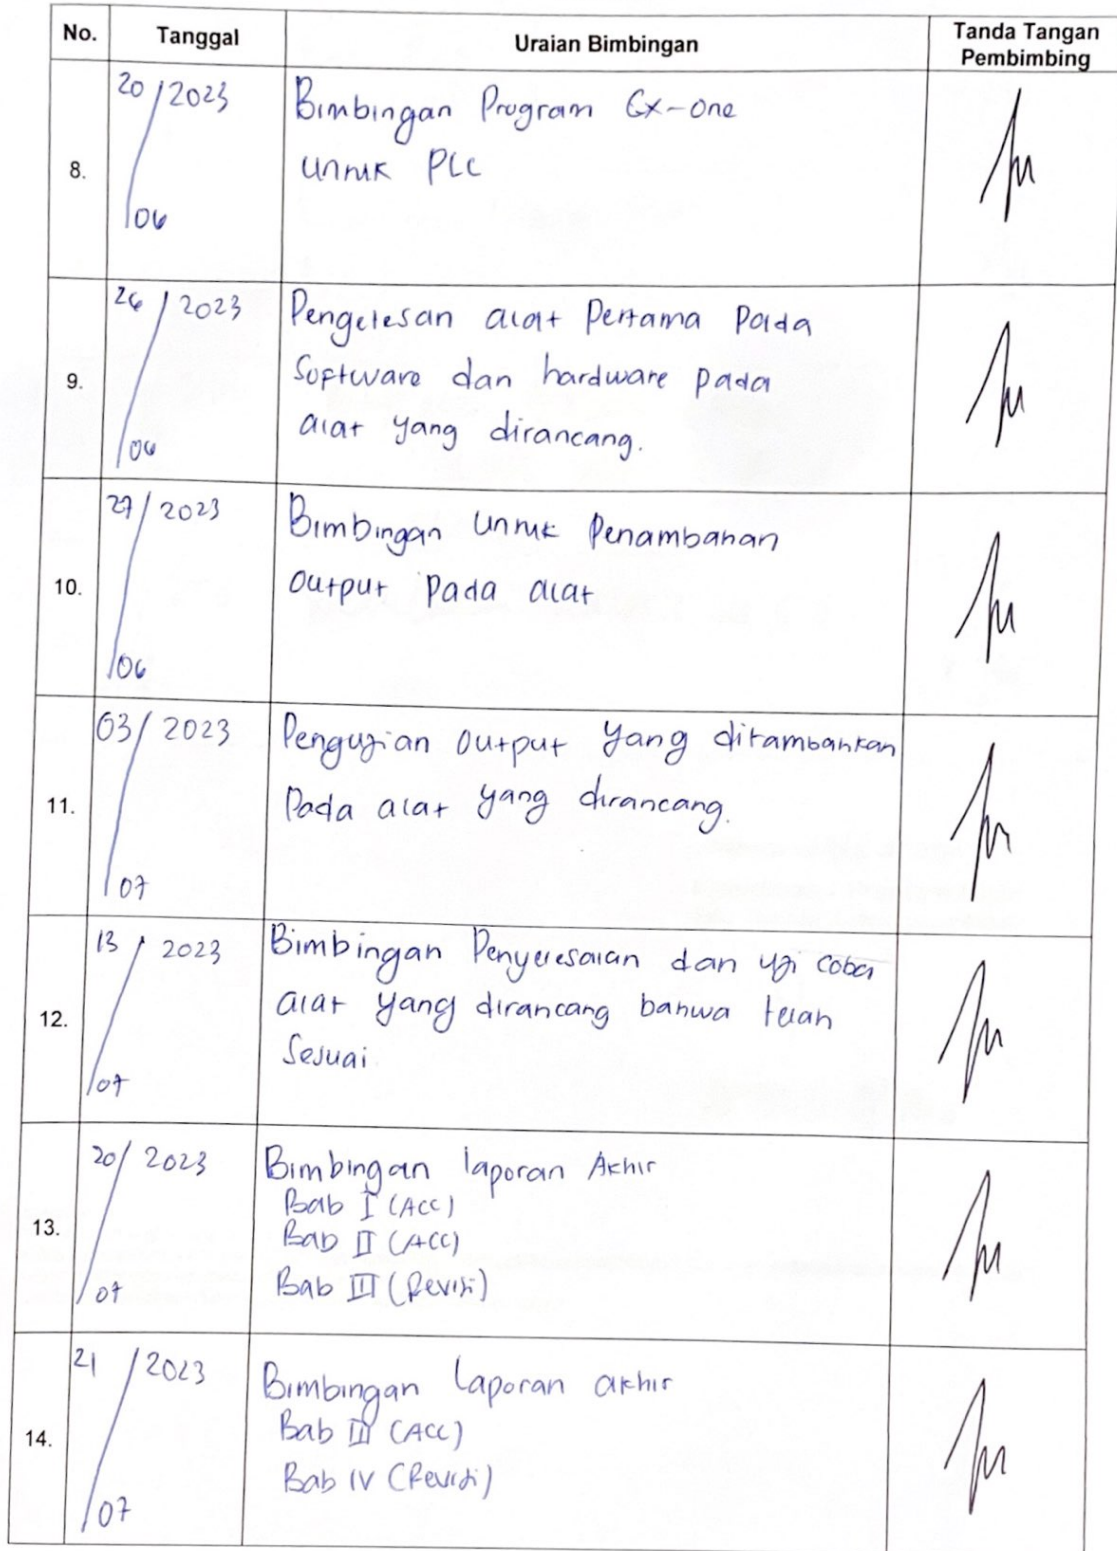 No. Tanggal Uraian Bimbingan Tanda Tangan
Pembimbing
8. 20/06/2023 Bimbingan Program Cx-One
untuk PLC
9. 26/06/2023 Pengetesan alat Pertama Pada
Software dan hardware pada
alat yang dirancang.
10. 27/06/2023 Bimbingan untuk Penambahan
output Pada alat
11. 03/07/2023 Pengujian output yang ditambahkan
Pada alat yang dirancang.
12. 13/07/2023 Bimbingan Penyelesaian dan uji coba
alat yang dirancang bahwa telah
Sesuai.
13. 20/07/2023 Bimbingan laporan Akhir
Bab I (ACC)
Bab II (ACC)
Bab III (Revisi)
14. 21/07/2023 Bimbingan Laporan akhir
Bab III (ACC)
Bab IV (Revisi)